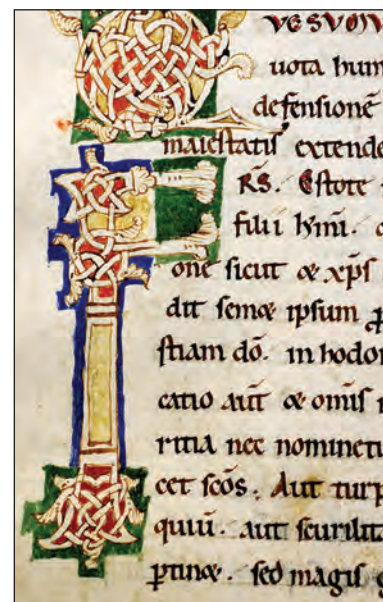 uota hum
defensionē
maieſtatiſ extende
FRS̄. Eſtote
filii km̄i.
one ſicut & xp̄ſ
dit ſem& ipſum p
ſtiam dō. in hodor
catio aūt & omīſ
ritia nec nomin&u
cet ſcōs. Aut turp
quiū. aut ſcurilita
ꝑtin&. ſed magiſ g